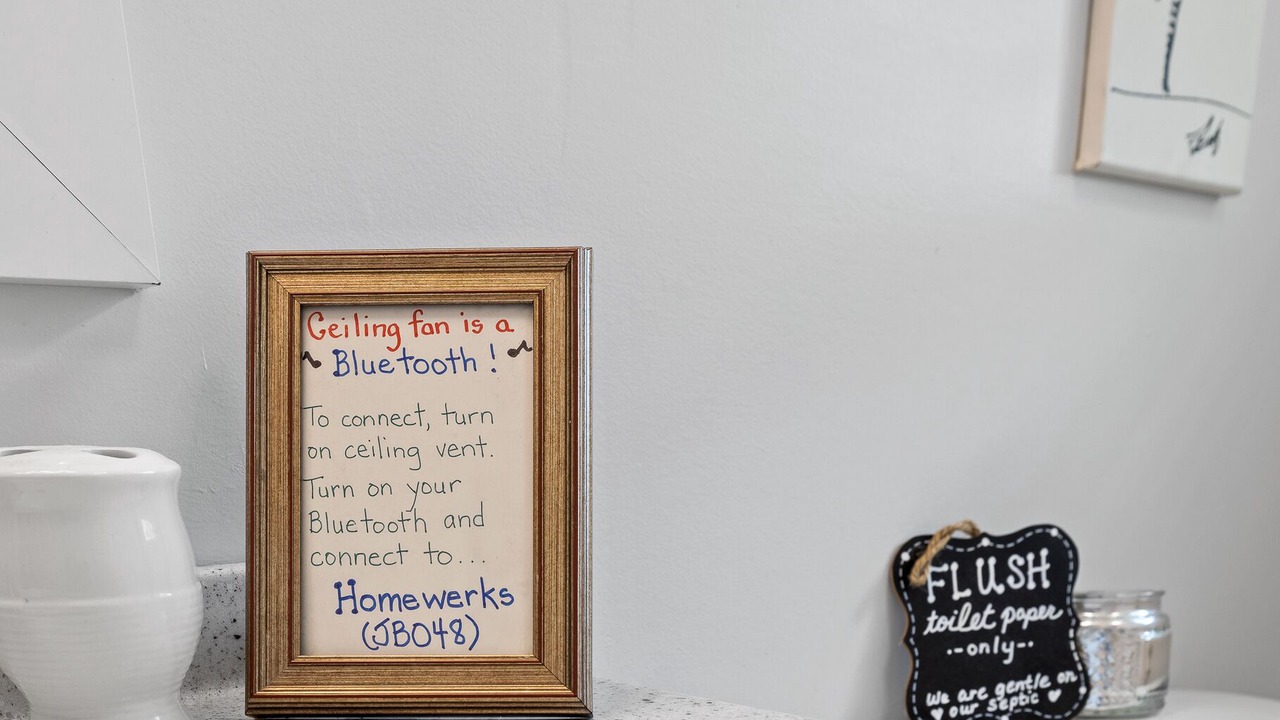 Ceiling fan is a
Bluetooth!
To connect, turn
on ceiling vent.
Turn on your
Bluetooth and
connect to...
Homewerks
(JB048)
FLUSH
toilet paper
-only-
we are gentle on
our septic